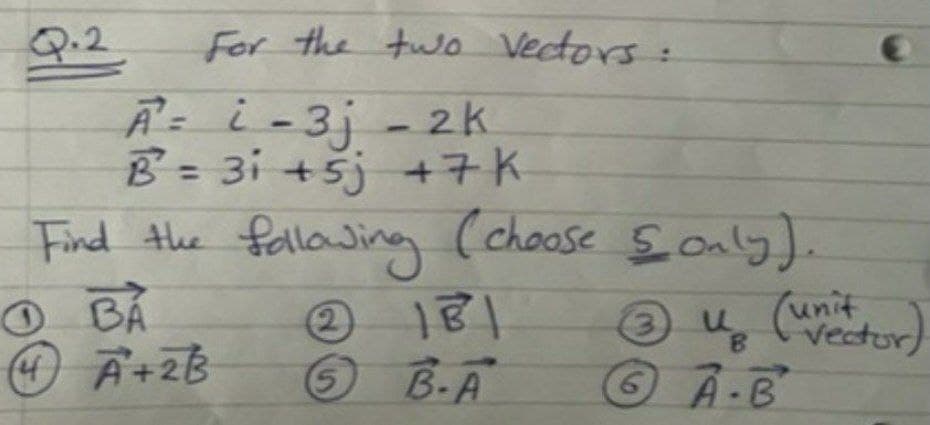 Q.2 For the two Vectors :
A⃗ = i - 3j - 2K
B⃗ = 3i + 5j + 7K
Find the following (choose 5 only).
① B⃗A ② |B⃗| ③ u_B (unit vector)
④ A⃗+2B⃗ ⑤ B⃗-A⃗ ⑥ A⃗·B⃗